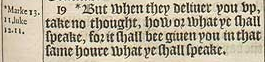 *Marke 13.
11,luke
12.11.
19 *But when they deliuer you vp,
take no thought, how oꝛ what ye ſhall
ſpeake, foꝛ it ſhall bee giuen you in that
ſame houre what ye ſhall ſpeake.